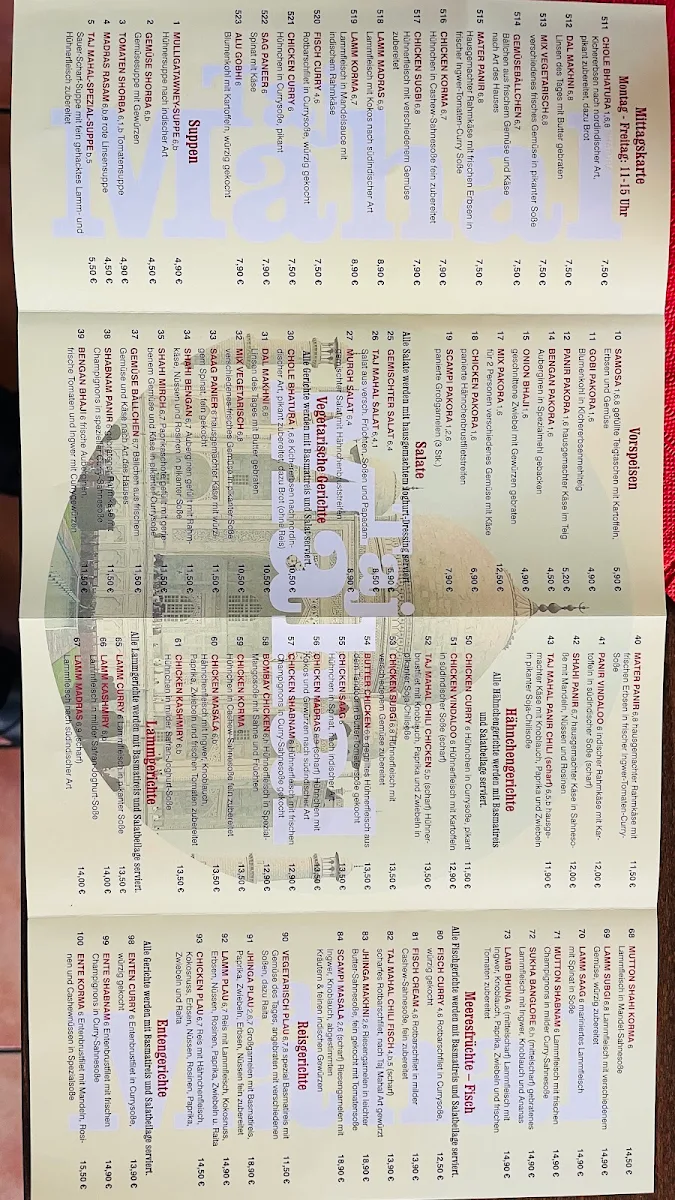 Mittagskarte
Montag - Freitag: 11-15 Uhr
511 CHOLE BHATURA 1,6,8 7,50 €
Kichererbsen nach nordindischer Art,
pikant zubereitet, dazu Brot
512 DAL MAKHNI 6,8 7,50 €
Linsen des Tages mit Butter gebraten
513 MIX VEGETARISCH 6,8 7,50 €
verschiedenes frisches Gemüse in pikanter Soße
514 GEMÜSEBÄLLCHEN 6,7 7,50 €
Bällchen aus frischem Gemüse und Käse
nach Art des Hauses
515 MATER PANIR 6,8 7,50 €
Hausgemachter Rahmkäse mit frischen Erbsen in
frischer Ingwer-Tomaten-Curry Soße
516 CHICKEN KORMA 6,7 7,90 €
Hühnchen in Cashew-Sahnesoße fein zubereitet
517 CHICKEN SUGBI 6,8 7,90 €
Hühnerfleisch mit verschiedenem Gemüse
zubereitet
518 LAMM MADRAS 6,9 8,90 €
Lammfleisch mit Kokos nach südindischer Art
519 LAMM KORMA 6,7 8,90 €
Lammfleisch in Mandelsauce mit
indischem Rahmkäse
520 FISCH CURRY 4,6 7,50 €
Rotbarschfilet in Currysoße, würzig gekocht
521 CHICKEN CURRY 6 7,50 €
Hühnchen in Currysoße, pikant
522 SAG PANEER 6 7,90 €
Spinat mit Käse
523 ALU GOBHI 6 7,90 €
Blumenkohl mit Kartoffeln, würzig gekocht
Suppen
1 MULLIGATAWNEY-SUPPE 6,b 4,90 €
Hühnersuppe nach indischer Art
2 GEMÜSE SHORBA 6,b 4,50 €
Gemüsesuppe mit Gewürzen
3 TOMATEN SHORBA 6,1,b Tomatensuppe 4,90 €
4 MADRAS RASAM 6,b,8 rote Linsensuppe 4,50 €
5 TAJ MAHAL-SPEZIAL-SUPPE b,5 5,50 €
Sauer-Scharf-Suppe mit fein gehacktes Lamm- und
Hühnerfleisch zubereitet
Vorspeisen
10 SAMOSA 1,6,8 gefüllte Teigtaschen mit Kartoffeln, 5,90 €
Erbsen und Gemüse
11 GOBI PAKORA 1,6 4,90 €
Blumenkohl in Kichererbsenmehlteig
12 PANIR PAKORA 1,6 hausgemachter Käse im Teig 5,20 €
14 BENGAN PAKORA 1,6 4,50 €
Auberginen in Spezialmehl gebacken
15 ONION BHAJI 1,6 4,90 €
geschnittene Zwiebel mit Gewürzen gebraten
17 MIX PAKORA 1,6 12,50 €
für 2 Personen verschiedenes Gemüse mit Käse
18 CHICKEN PAKORA 1,6 6,90 €
panierte Hähnchenbrustfiletstreifen
19 SCAMPI PAKORA 1,2,6 7,90 €
panierte Großgarnelen (3 Stk.)
Salate
Alle Salate werden mit hausgemachtem Joghurt-Dressing serviert.
25 GEMISCHTER SALAT 6,4 5,90 €
26 TAJ MAHAL SALAT 6,4,1 8,50 €
Salat aus Hirsch, Früchten, Soßen und Papadam
27 MURGH SALAT 8,90 €
gemischter Salat mit Hähnchenbruststreifen
Vegetarische Gerichte
Alle Gerichte werden mit Basmatireis und Salat serviert.
30 CHOLE BHATURA 1,6,8 Kichererbsen nach nordin- 10,50 €
discher Art, pikant zubereitet, dazu Brot (ohne Reis)
31 DAL MAKHNI 6,8 10,50 €
Linsen des Tages mit Butter gebraten
32 MIX VEGETARISCH 6,8 10,50 €
verschiedenes frisches Gemüse in pikanter Soße
33 SAAG PANIER 6 hausgemachter Käse mit würzi- 11,50 €
gem Spinat, fein gekocht
34 SHAHI BENGAN 6,7 Auberginen gefüllt mit Rahm- 11,50 €
käse, Nüssen und Rosinen in pikanter Soße
35 SHAHI MIRCH 6,7 Paprikaschote gefüllt mit gerie- 11,50 €
benem Gemüse und Käse in pikanter Currysoße
37 GEMÜSE BÄLLCHEN 6,7 Bällchen aus frischem 11,50 €
Gemüse und Käse nach Art des Hauses
38 SHABNAM PANIR 11,50 €
Champignons in spezieller
39 BENGAN BHAJI 6 frische Auberginen, 11,50 €
frische Tomaten und Ingwer mit Currygewürzen
40 MATER PANIR 6,8 hausgemachter Rahmkäse mit 11,50 €
frischen Erbsen in frischer Ingwer-Tomaten-Curry-
Soße
41 PANIR VINDALOO 6 indischer Rahmkäse mit Kar- 12,00 €
toffeln in südindischer Soße (scharf)
42 SHAHI PANIR 6,7 hausgemachter Käse in Sahneso- 12,00 €
ße mit Mandeln, Nüssen und Rosinen
43 TAJ MAHAL PANIR CHILI (scharf) 6,5,b hausge- 11,90 €
machter Käse mit Knoblauch, Paprika und Zwiebeln
in pikanter Soja-Chilisoße
Hühnchengerichte
Alle Hähnchengerichte werden mit Basmatireis
und Salatbeilage serviert.
50 CHICKEN CURRY 6 Hühnchen in Currysoße, pikant 11,50 €
51 CHICKEN VINDALOO 6 Hühnerfleisch mit Kartoffeln 12,90 €
in südindischer Soße (scharf)
52 TAJ MAHAL CHILI CHICKEN 5,b (scharf) Hühner- 13,50 €
brustfilet mit Knoblauch, Paprika und Zwiebeln in
pikanter Soja-Chilisoße
53 CHICKEN SUBGI 6,8 Hühnerfleisch mit 13,50 €
verschiedenem Gemüse zubereitet
54 BUTTER CHICKEN 6,8 gegrilltes Hühnerfleisch aus 13,50 €
dem Tandoori in Buttertomatensoße gekocht
55 CHICKEN SAAG 6 13,50 €
Hühnchen in Spinat nach indischer Art
56 CHICKEN MADRAS 6,9 (scharf) Hühnchen mit 13,50 €
Kokos und Gewürzen nach südindischer Art
57 CHICKEN SHABNAM 6 Hühnerfleisch mit frischen 12,90 €
Champignons in Curry-Sahnesoße gekocht
58 BOMBAY CHICKEN 6,8 Hühnerfleisch in Spezial- 12,90 €
Mangosoße mit Sahne und Früchten
59 CHICKEN KORMA 13,50 €
Hühnchen in Cashew-Sahnesoße fein zubereitet
60 CHICKEN MASALA 6,b 13,50 €
Hähnchenfleisch mit Ingwer, Knoblauch,
Paprika, Zwiebeln und frischen Tomaten zubereitet
61 CHICKEN KASHMIRY 6,b 13,50 €
Hühnchen in milder Safran-Joghurt-Soße
Lammgerichte
Alle Lammgerichte werden mit Basmatireis und Salatbeilage serviert.
65 LAMM CURRY 6 Lammfleisch in pikanter Soße 13,50 €
66 LAMM KASHMIRY 6,b 14,00 €
Lammfleisch in milder Safran-Joghurt-Soße
67 LAMM MADRAS 6,9 (scharf) 14,00 €
Lammfleisch nach südindischer Art
68 MUTTON SHAHI KORMA 6 14,50 €
Lammfleisch in Mandel-Sahnesoße
69 LAMM SUBGI 6,8 Lammfleisch mit verschiedenem 14,90 €
Gemüse würzig zubereitet
70 LAMM SAAG 6 mariniertes Lammfleisch 14,90 €
mit Spinat in Soße
71 MUTTON SHABNAM 6 Lammfleisch mit frischen 14,90 €
Champignons in milder Curry-Sahnesoße
72 SUKHA BANGLORE 6, (mittelscharf) gebratenes 14,90 €
Lammfleisch mit Ingwer, Knoblauch und Ananas
73 LAMB BHUNA 6 (mittelscharf) Lammfleisch mit 14,90 €
Ingwer, Knoblauch, Paprika, Zwiebeln und frischen
Tomaten zubereitet
Meeresfrüchte – Fisch
Alle Fischgerichte werden mit Basmatireis und Salatbeilage serviert.
80 FISCH CURRY 4,6 Rotbarschfilet in Currysoße, 12,50 €
würzig gekocht
81 FISCH CREAM 4,6 Rotbarschfilet in milder 13,90 €
Cashew-Sahnesoße, fein zubereitet
82 TAJ MAHAL CHILI FISCH 4,5,b (scharf) 13,90 €
scharfes Rotbarschfilet, nach Taj Mahal Art gewürzt
83 JHINGA MAKHNI 2,6 Riesengarnelen in leichter 18,90 €
Butter-Sahnesoße, fein gekocht mit Tomatensoße
84 SCAMPI MASALA 2,6 (scharf) Riesengarnelen mit 18,90 €
Ingwer, Knoblauch, abgestimmten
Kräutern & feinen indischen Gewürzen
Reisgerichte
90 VEGETARISCH PLAU 6,7,8 spezial Basmatireis mit 11,50 €
Gemüse des Tages, angebraten mit verschiedenen
Soßen, dazu Raita
91 JHINGA PLAU 2,6,7 Großgarnelen mit Basmatireis, 18,90 €
Paprika, Zwiebeln, Erbsen, Nüssen fein zubereitet
92 LAMM PLAU 6,7 Reis mit Lammfleisch, Kokosnuss, 14,90 €
Erbsen, Nüssen, Rosinen, Paprika, Zwiebeln u. Raita
93 CHICKEN PLAU 6,7 Reis mit Hähnchenfleisch, 14,50 €
Kokosnuss, Erbsen, Nüssen, Rosinen, Paprika,
Zwiebeln und Raita
Entengerichte
Alle Gerichte werden mit Basmatireis und Salatbeilage serviert.
98 ENTEN CURRY 6 Entenbrustfilet in Currysoße, 13,90 €
würzig gekocht
99 ENTE SHABNAM 6 Entenbrustfilet mit frischen 14,90 €
Champignons in Curry-Sahnesoße
100 ENTE KORMA 6 Entenbrustfilet mit Mandeln, Rosi- 15,50 €
nen und Cashewnüssen in Spezialsoße